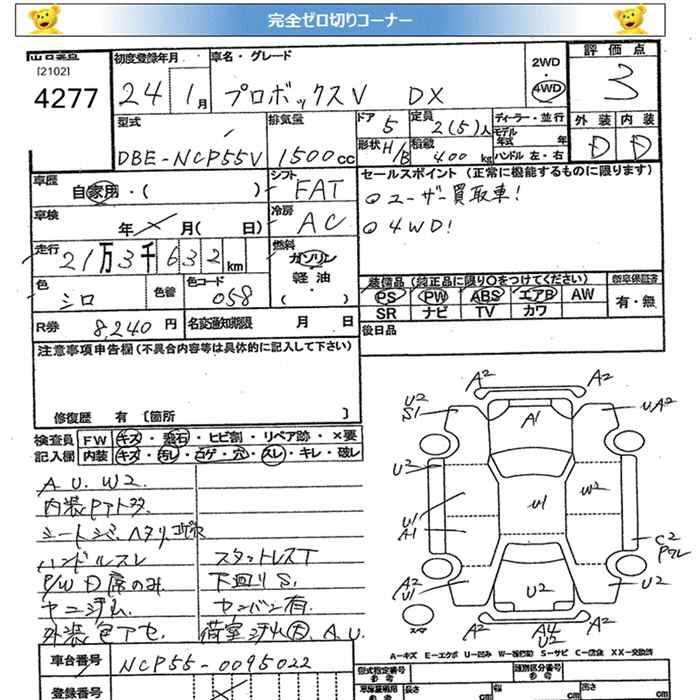 完全ゼロ切りコーナー
[2102]
4277
初度登録年月
24 1月
車名・グレード
プロボックスV DX
2WD
・
4WD
評価点
3
外装 内装
D D
型式
DBE-NCP55V
排気量
1500cc
ドア 5
形状 H/B
定員 2(5)人
積載 400 kg
ディーラー・並行
モデル年式 年
ハンドル 左・右
車歴
自家用・( )
シフト
FAT
車検
年 月( 日)
冷房
AC
走行
21万3千632km
燃料
ガソリン
軽油
( )
色
シロ
色替
色コード
058
R券 8,240円
名変通知期限 月 日
セールスポイント (正常に機能するものに限ります)
ユーザー買取車!
4WD!
装備品 (純正品に限り〇をつけてください)
PS PW ABS エアB AW
SR ナビ TV カワ
新車保証書
有・無
後日品
注意事項申告欄(不具合内容等は具体的に記入して下さい)
修復歴 有 [箇所 ]
検査員記入欄
FW キズ・飛石・ヒビ割・リペア跡・×要
内装 キズ・汚れ・コゲ・穴・スレ・キレ・破レ
A.U.W2
内装
シートシミ、ヘタリ、コゲ穴
ハンドルスレ
P/W D席のみ
ヤニジミ
外装色アセ
スタットレスT
下廻りS1
ヤンバン有
荷室汚れ大 A.U.
A2 A2
U2 S1
A1
UA2
U2
U1 A1
U1
W2
C2
A2 U1
U2
U2
A2
A4 U2
A2
スペア
A-キズ E-エクボ U-凹み W-補修跡 S-サビ C-腐食 XX-交換済
車台番号 NCP55-0095022
登録番号
型式指定番号
参考
類別区分番号
参考
長さ cm
幅 cm
高さ cm